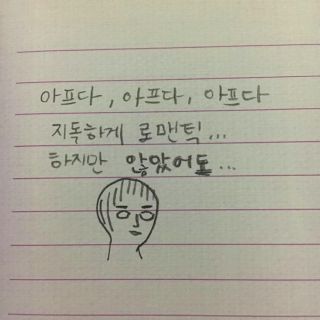 아프다, 아프다, 아프다
지독하게 로맨틱...
하지만 않았어도...